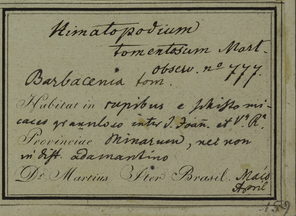 Himatopodium
tomentosum Mart.
observ. nº 777.
Barbacenia tom.
Habitat in rupibus e schisto mi-
caceo granuloso inter S. Joañ. et Vª Rª.
Provinciae Minarum, nec non
in dist. adamantino
Dr Martius Iter Brasil. Majo
April